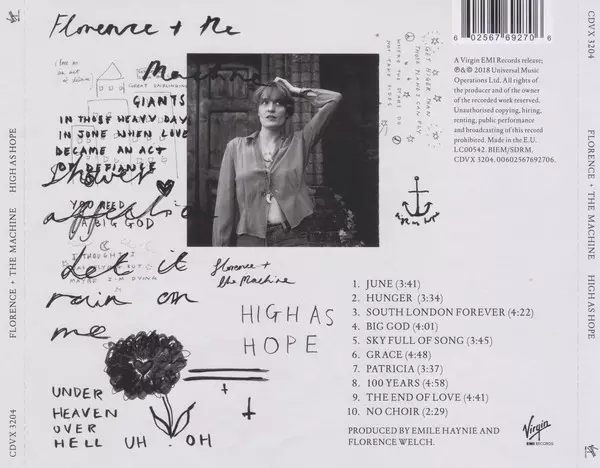 CDVX 3204
FLORENCE + THE MACHINE
HIGH AS HOPE
Florence + the
Machine
GIANTS
IN THOSE HEAVY DAYS
IN JUNE WHEN LOVE
BECAME AN ACT
OF DEFIANCE
Shower
affection
YOU NEED
A BIG GOD
Let it
I THOUGHT I
MAYBE I'M DYING
rain on
me
UNDER
HEAVEN
OVER
HELL
UH OH
GET HIGHER THAN
THOSE PLANES CAN FLY
WHERE THE STARS DO
NOT TAKE SIDES
Florence +
the Machine
HIGH AS
HOPE
6 02567 69270 6
A Virgin EMI Records release;
℗&© 2018 Universal Music
Operations Ltd. All rights of
the producer and of the owner
of the recorded work reserved.
Unauthorised copying, hiring,
renting, public performance
and broadcasting of this record
prohibited. Made in the E.U.
LC00542. BIEM/SDRM.
CDVX 3204. 00602567692706.
1. JUNE (3:41)
2. HUNGER (3:34)
3. SOUTH LONDON FOREVER (4:22)
4. BIG GOD (4:01)
5. SKY FULL OF SONG (3:45)
6. GRACE (4:48)
7. PATRICIA (3:37)
8. 100 YEARS (4:58)
9. THE END OF LOVE (4:41)
10. NO CHOIR (2:29)
PRODUCED BY EMILE HAYNIE AND
FLORENCE WELCH.
Virgin
EMI RECORDS
CDVX 3204
FLORENCE + THE MACHINE
HIGH AS HOPE
Virgin